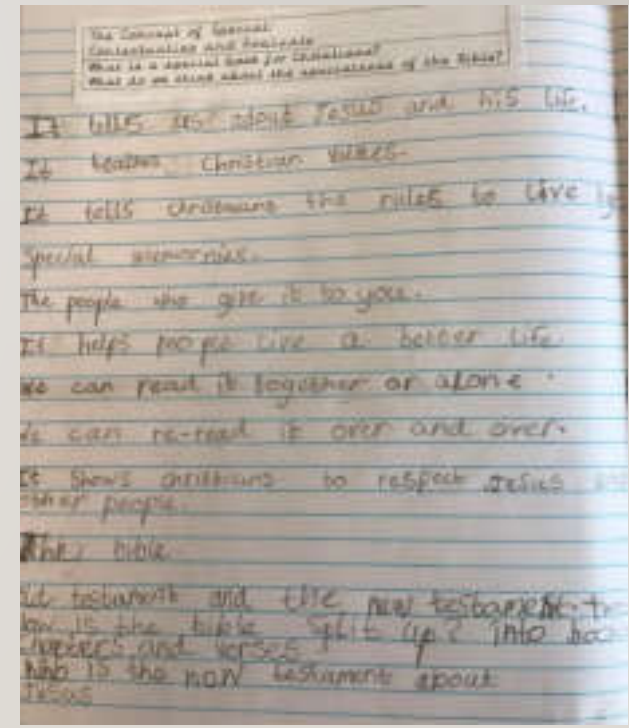 The Concept of Special
Contextualise and Evaluate
What is a special book for Christians?
What do we think about the specialness of the Bible?
It tells us about Jesus and his life.
It teaches Christian values.
It tells christians the rules to live
Special memories.
The people who give it to you.
It helps people live a better life
we can read it together or alone.
We can re-read it over and over.
It shows christians to respect Jesus
other people.
The bible
old testament and the new testament.
How is the bible split up? into
chapters and verses
who is the new testament about
Jesus